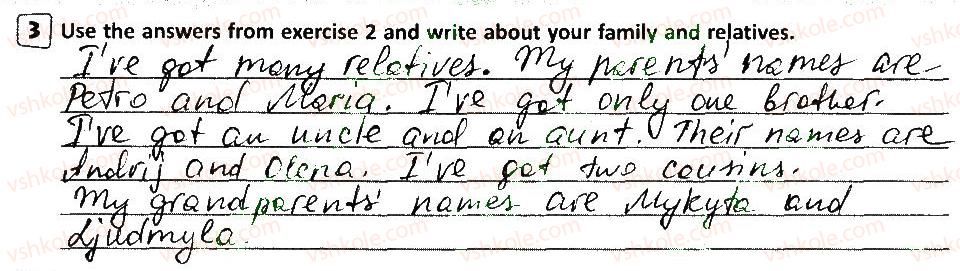 3 Use the answers from exercise 2 and write about your family and relatives.
I've got many relatives. My parents' names are
Petro and Maria. I've got only one brother.
I've got an uncle and an aunt. Their names are
Andrij and Olena. I've got two cousins.
My grandparents' names are Mykyta and
Ljudmyla.